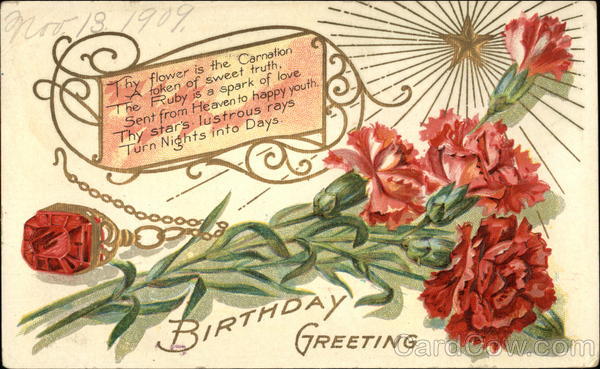 Nov 13 1909
Thy flower is the Carnation
A token of sweet truth,
The Ruby is a spark of love
Sent from Heaven to happy youth.
Thy star's lustrous rays
Turn Nights into Days.
BIRTHDAY
GREETING
CardCow.com